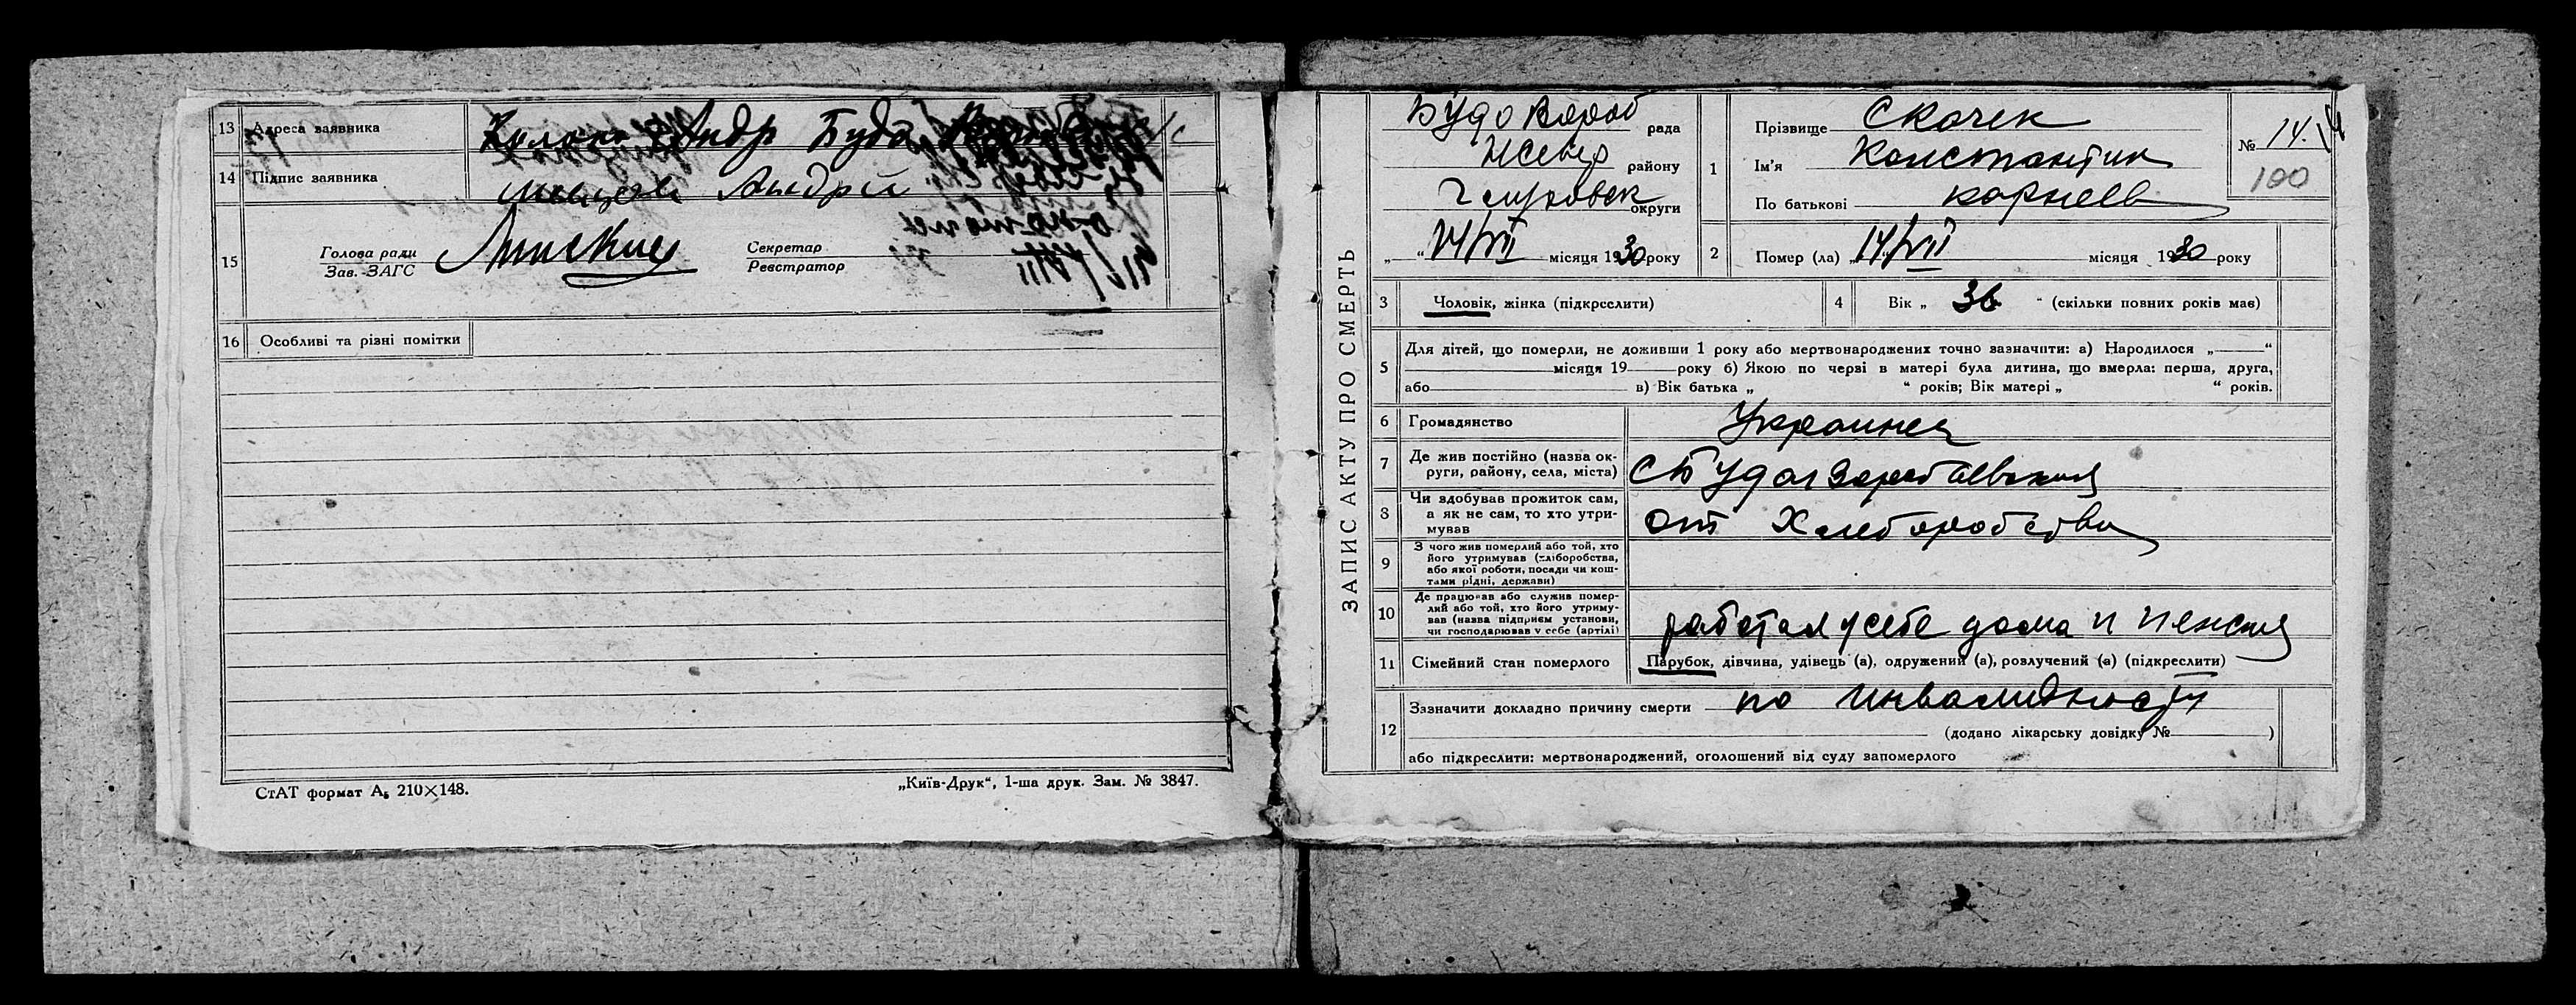 13 Адреса заявника Андр Буда
14 Підпис заявника Андрій
15 Голова ради
Зав. ЗАГС
Секретар
Реєстратор
16 Особливі та різні помітки
СтАТ формат А₅ 210×148.
„Київ-Друк“, 1-ша друк. Зам. № 3847.
ЗАПИС АКТУ ПРО СМЕРТЬ
Будо Вороб рада
району
округи
„ “ 14/VII місяця 1930 року
1 Прізвище Скочек
Ім'я Константин
По батькові Корнеев
№ 14.
100
2 Помер (ла) „14/VII місяця 1930 року
3 Чоловік, жінка (підкреслити)
4 Вік „ 36 “ (скільки повних років має)
5 Для дітей, що померли, не доживши 1 року або мертвонароджених точно зазначити: а) Народилося „ “
місяця 19 року б) Якою по черві в матері була дитина, що вмерла: перша, друга,
або в) Вік батька „ “ років; Вік матері „ “ років.
6 Громадянство Украинец
7 Де жив постійно (назва ок-
руги, району, села, міста) С Буда Воробьевская
8 Чи здобував прожиток сам,
а як не сам, то хто утри-
мував от Хлеборобства
9 З чого жив померлий або той, хто
його утримував (хліборобства,
або якої роботи, посади чи кош-
тами рідні, держави)
10 Де працював або служив помер-
лий або той, хто його утриму-
вав (назва підприєм установи,
чи господарював у себе (артілі)
работал у себе дома и пенсия
11 Сімейний стан померлого Парубок, дівчина, удівець (а), одружений (а), розлучений (а) (підкреслити)
12 Зазначити докладно причину смерти по инвалидности
(додано лікарську довідку № )
або підкреслити: мертвонароджений, оголошений від суду запомерлого